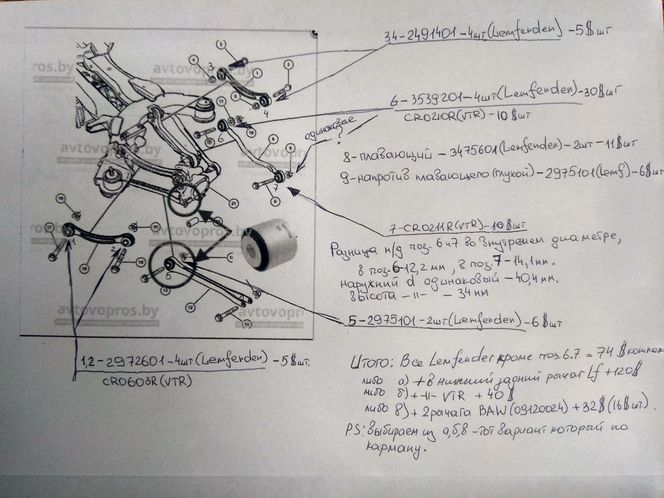 34-2491401-4шт(Lemfenden)-5$шт
6-3539201-4шт(Lemfenden)-30$шт
CR0210R(VTR)-10$шт
одинаковые
8-плавающий-3475601(Lemfenden)-2шт-11$шт
9-напротив плавающего(глухой)-2975101(Lemf)-6$шт
7-CR0211R(VTR)-10$шт
Разница м/д поз. 6 и 7 во внутреннем диаметре,
в поз.6-12,2 мм, в поз.7-14,1мм.
наружний d одинаковый-40,4мм.
высота -11- 34мм
5-2975101-2шт(Lemfenden)-6$шт
1,2-2972601-4шт(Lemfenden)-5$шт.
CR0603R(VTR)
Итого: Все Lemfender кроме поз.6.7=74$
либо а)+в нижний задний рычаг Lf+120$
либо б)+-11-VTR+40$
либо в)+2рычага BAW(09120024)+32$(16$шт).
P.S:выбираем из а,б,в-тот вариант который по
карману.
avtovopros.by
avtovopros.by
avtovopros.by
avtovopros.by
avtovopros.by